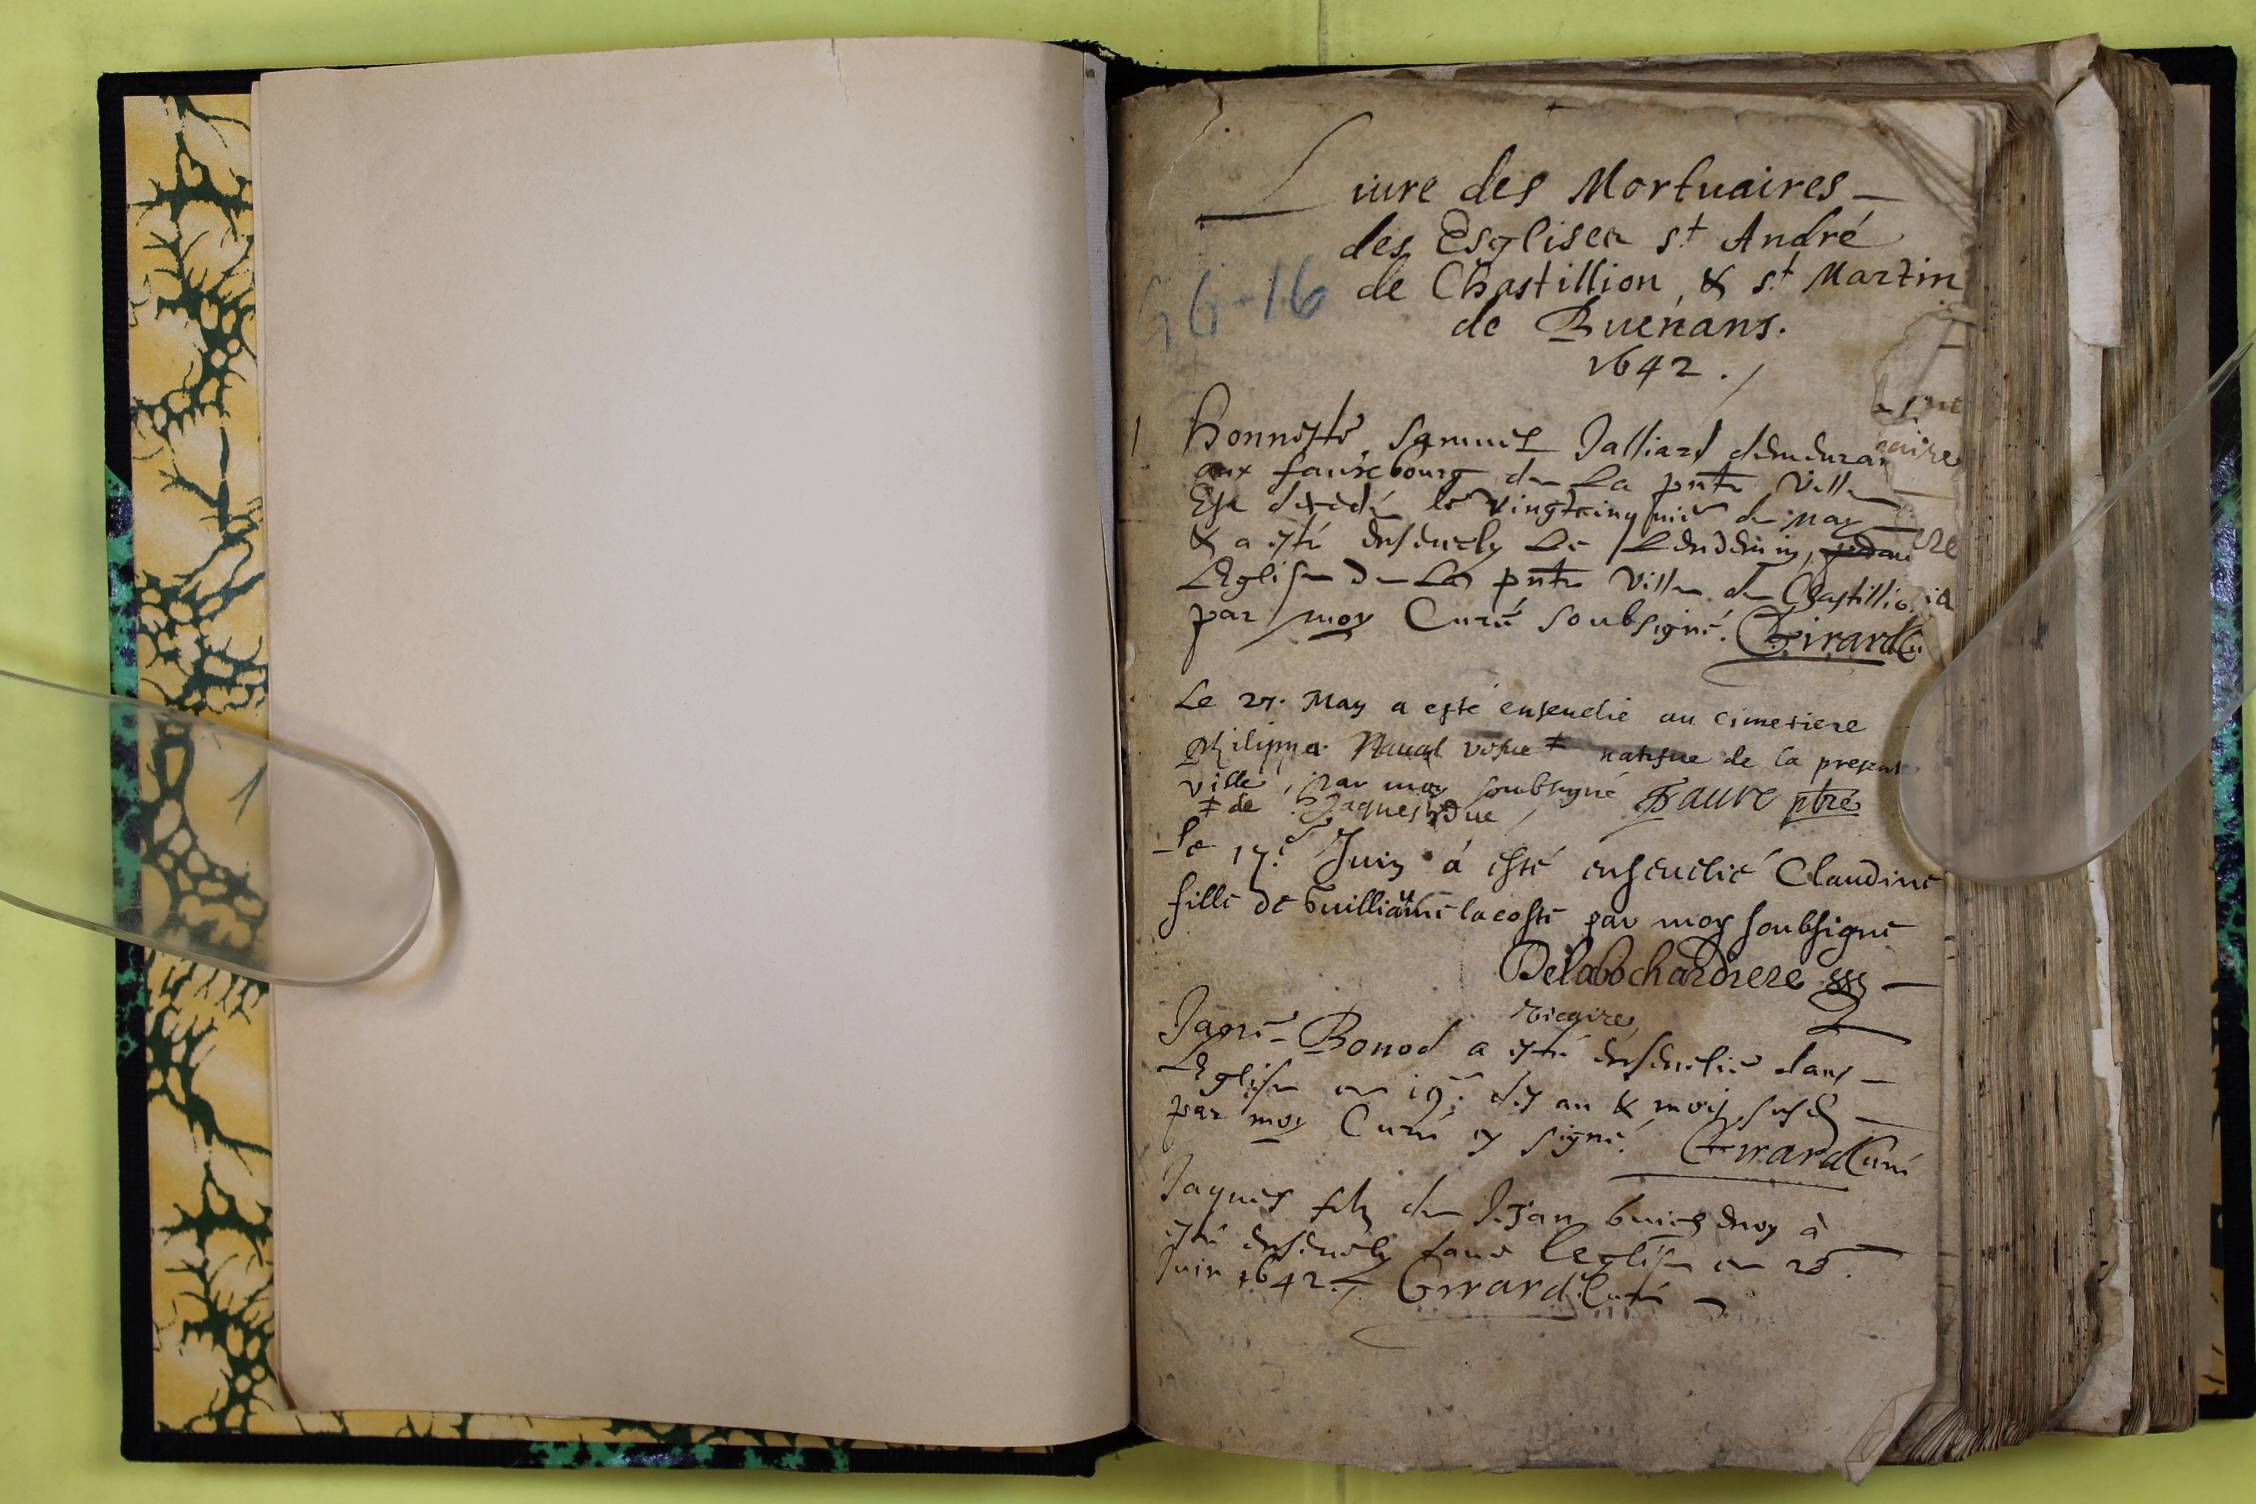 Liure des Mortuaires
des Esglises st André
de Chastillion, & st Martin
de Buenans.
GG-16
1642.
1
honneste Samuel Jalliard demeuran
aux fauxbourg de La pnte Ville
Est decedé le Vingtcinquie de May
& a esté enseuely Le Lendemin,
LEglise de La pnte Ville de Chastillio
par moy Curé soubsigné. Girard Cu
Le 27. May a esté enseuelie au cimetiere
Philippa vefue ‡ natifue de la present
ville, Par moy soubsigné Faure ptre
‡ de Jaques
Le 17.e Juin á esté enseuelie Claudine
fille de Guilliaume lacoste par moy soubsigné
Delabochardiere
vicaire
Bonod a esté enseuelie dans
LEglise en 19.e des an & mois susd
par moy Curé cy signé. Girard Curé
Jaques filz de Jean à
esté enseuely dans leglise en 28.
Juin 1642. Girard Curé